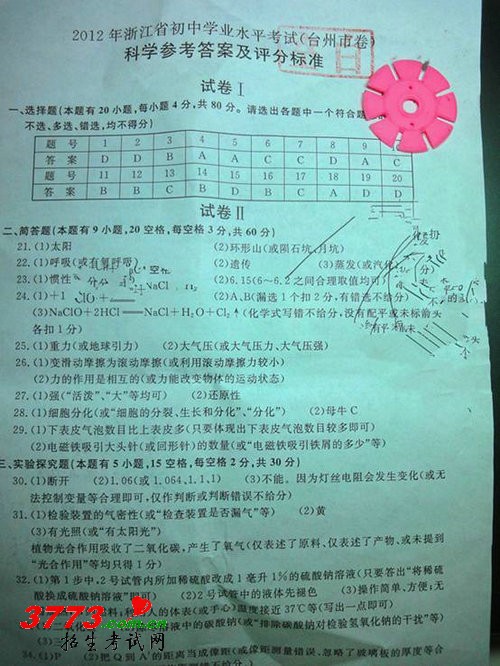 2012年浙江省初中学业水平考试(台州市卷)
科学参考答案及评分标准
试卷Ⅰ
一、选择题(本题有20小题,每小题4分,共80分。请选出各题中一个符合题
不选、多选、错选,均不得分)
题号 1 2 3 4 5 6 7 8 9
答案 D D B A A C C D A C
题号 11 12 13 14 15 16 17 18 19 20
答案 B B C B D B C A C
试卷Ⅱ
二、简答题(本题有9小题,20空格,每空格3分,共60分)
21.(1)太阳 (2)环形山(或陨石坑、月坑)
22.(1)呼吸(或有氧呼吸) (2)遗传 (3)蒸发(或汽化)
23.(1)惯性 (2)6.15(6～6.2之间合理取值均可)
24.(1)+1 (2)A、B(漏选1个扣2分,有错选不给分)
(3)NaClO+2HCl NaCl+H₂O+Cl₂↑(化学式写错不给分,没有配平或未标箭头
各扣1分)
25.(1)重力(或地球引力) (2)大气压(或大气压力、大气压强)
26.(1)变滑动摩擦为滚动摩擦(或利用滚动摩擦力较小)
(2)力的作用是相互的(或力能改变物体的运动状态)
27.(1)强(“活泼”、“大”等均可) (2)还原性
28.(1)细胞分化(或“细胞的分裂、生长和分化”、“分化”) (2)母牛C
29.(1)下表皮气泡数目比上表皮多(只要体现出下表皮气泡数目较多即可)
(2)电磁铁吸引大头针(或回形针)的数量(或“电磁铁吸引铁屑的多少”等)
三、实验探究题(本题有5小题,15空格,每空格2分,共30分)
30.(1)断开 (2)1.06(或1.064、1.1、1) (3)不能。因为灯丝电阻会发生变化(或无
法控制变量等合理即可,仅作判断或判断错误不给分)
31.(1)检验装置的气密性(或“检查装置是否漏气”等) (2)黄
(3)有光照(或“有太阳光”)
植物光合作用吸收了二氧化碳,产生了氧气(仅表述了原料、仅表述了产物、或未提到
“光合作用”等均只得1分)
32.(1)第1步中,2号试管内所加稀硫酸改成1毫升1%的硫酸钠溶液(只要答出“将稀硫
酸换成硫酸钠溶液”即可) (2)2号试管中的液体先褪色 (3)操作简单、方便;无
人的体表(或手心)温度接近37℃等(写出一点即可)
溶液中的碳酸钠(或“排除碳酸钠对检验氢氧化钠的干扰”等)
34.(1)P (2)把Q到A′的距离当成像距(或像距测量错误、忽略了玻璃板的厚度等合
3773.com.cn
招生考试网